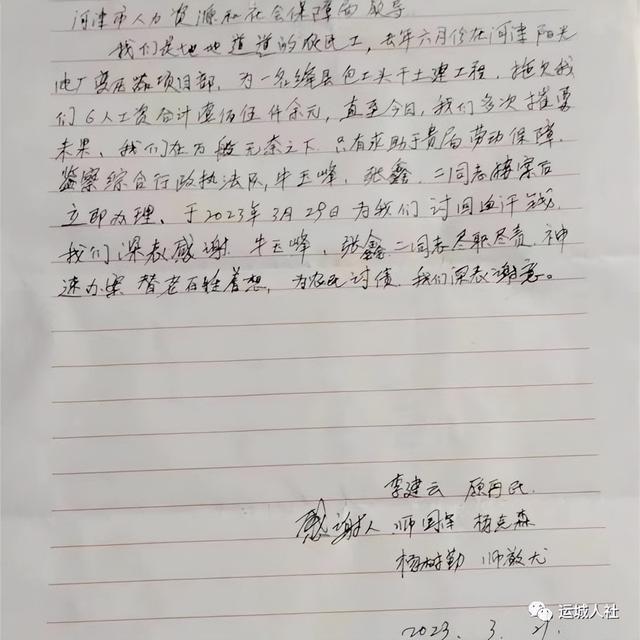 河津市人力资源和社会保障局领导
我们是地地道道的农民工,去年六月份在河津阳光
电厂变压器项目部,为一名绛县包工头干土建工程,拖欠我
们6人工资合计壹佰伍仟余元,直至今日,我们多次催要
未果、我们在万般无奈之下只有求助于贵局劳动保障
监察综合行政执法队,牛玉峰,张鑫二同志接案后
立即办理、于2023年3月29日为我们讨回血汗钱
我们深表感谢 牛玉峰,张鑫二同志尽职尽责,神
速办案 替老百姓着想,为农民讨债,我们深表谢意。
李建云 原百民
感谢人 师国军 杨克森
杨树勤 师敬尤
2023.3.
运城人社